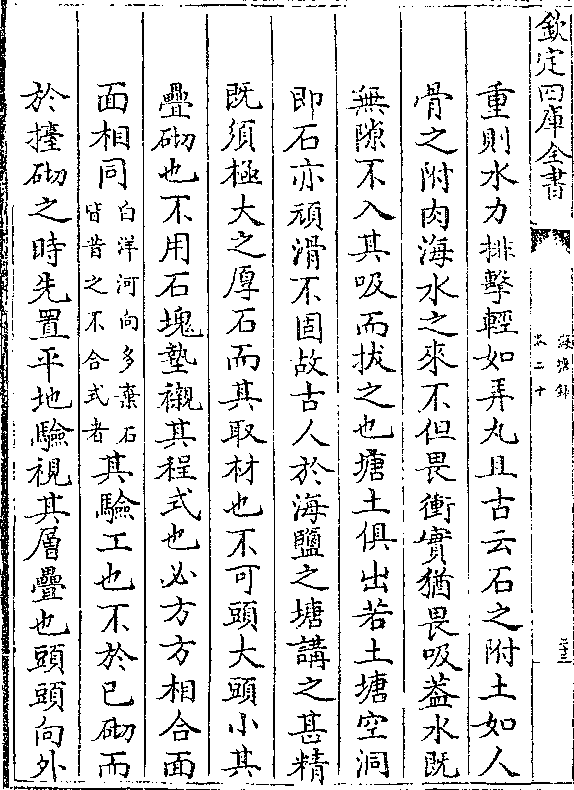 欽定四庫全書
海塘録
卷二十
二十三
重則水力排擊輕如弄丸且古云石之附土如人
骨之附肉海水之來不但畏衝實猶畏吸葢水既
無隙不入其吸而拔之也塘土俱出若土塘空洞
即石亦頑滑不固故古人於海鹽之塘講之甚精
既須極大之厚石而其取材也不可頭大頭小其
疊砌也不用石塊墊襯其程式也必方方相合面
面相同白洋河向多棄石皆昔之不合式者其驗工也不於已砌而
於擡砌之時先置平地驗視其層疊也頭頭向外